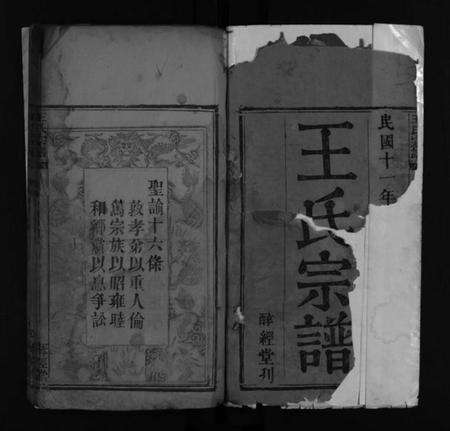 民國十一年
王氏宗譜
醉經堂刊
聖諭十六條
敦孝弟以重人倫
篤宗族以昭雍睦
和鄉黨以息爭訟